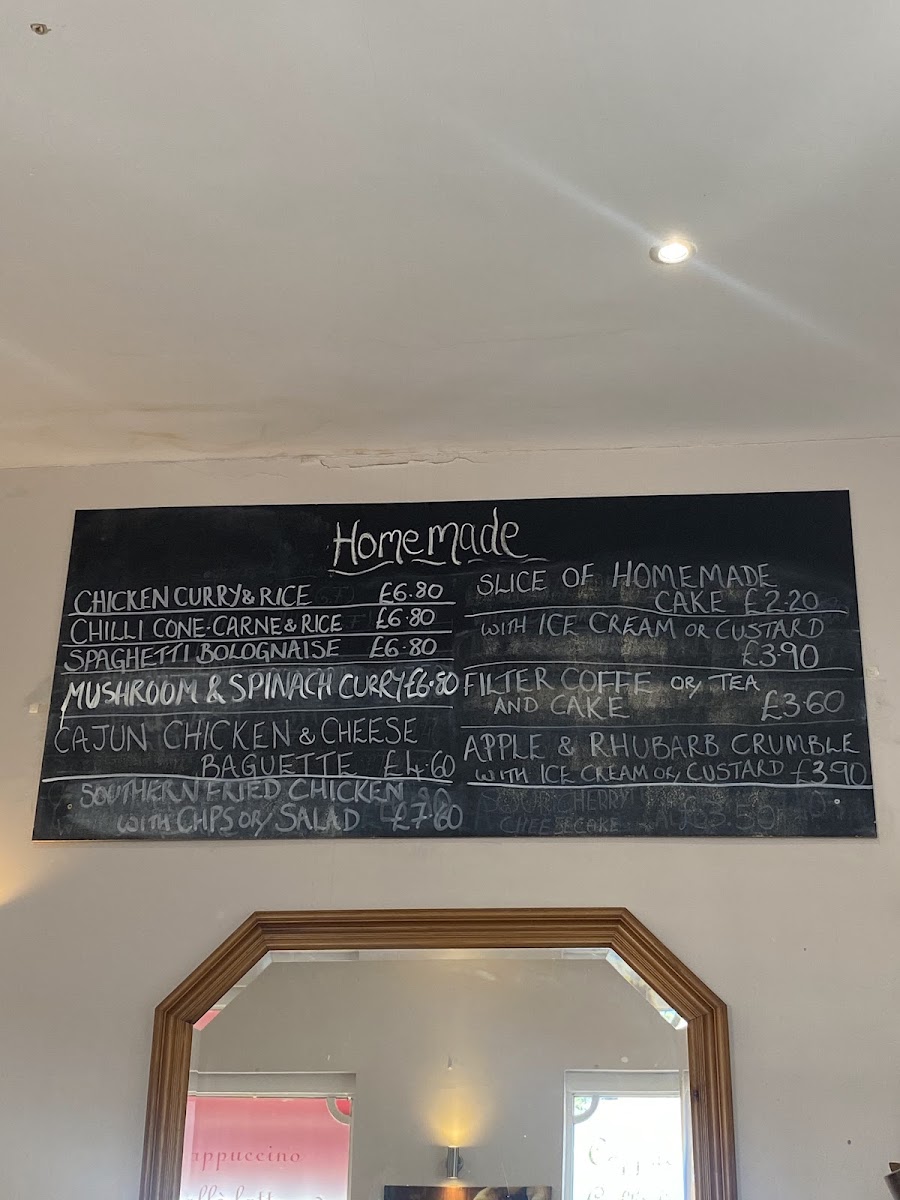 Homemade
CHICKEN CURRY & RICE £6.80
CHILLI CONE-CARNE & RICE £6.80
SPAGHETTI BOLOGNAISE £6.80
MUSHROOM & SPINACH CURRY £6.80
CAJUN CHICKEN & CHEESE
BAGUETTE £4.60
SOUTHERN FRIED CHICKEN
with CHPS or SALAD £7.60
SLICE OF HOMEMADE
CAKE £2.20
with ICE CREAM or CUSTARD
£3.90
FILTER COFFE or TEA
AND CAKE £3.60
APPLE & RHUBARB CRUMBLE
with ICE CREAM or CUSTARD £3.90
SOUR CHERRY
CHEESECAKE £3.50
appuccino